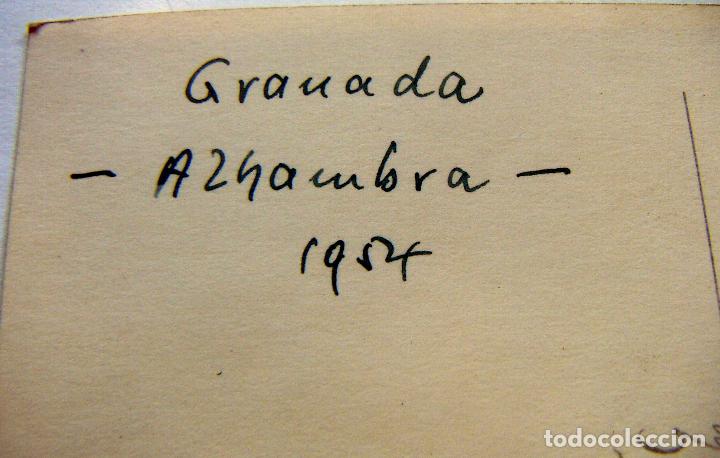 Granada
- Alhambra -
1954
todocoleccion